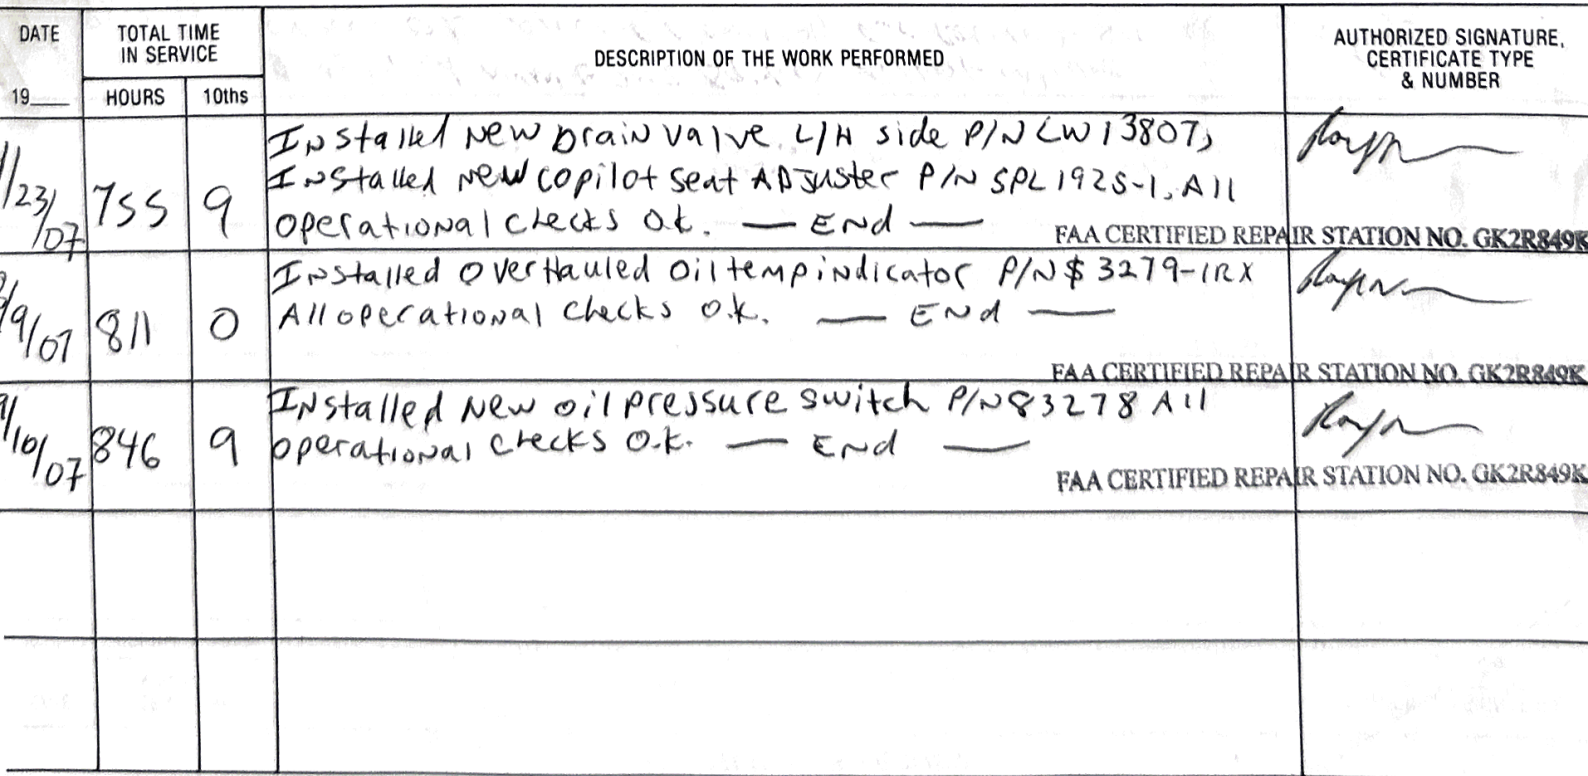 DATE
TOTAL TIME
IN SERVICE
DESCRIPTION OF THE WORK PERFORMED
AUTHORIZED SIGNATURE,
CERTIFICATE TYPE
& NUMBER
19
HOURS
10ths
Installed new drain valve L/H side P/N LW13807,
/23/07 755 9 Installed new copilot seat ADJuster P/N SPL1925-1, All
operational checks o.k. — End —
FAA CERTIFIED REPAIR STATION NO. GK2R849K
Installed Overhauled oil temp indicator P/N $3279-1RX
/9/07 811 0 All operational checks o.k. — End —
FAA CERTIFIED REPAIR STATION NO. GK2R849K
Installed new oil pressure switch P/N 83278 All
/10/07 846 9 operational checks o.k. — End —
FAA CERTIFIED REPAIR STATION NO. GK2R849K